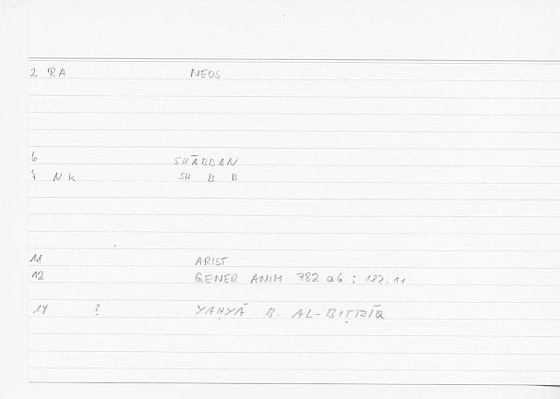 2 RA NEOS
6 SHĀBBAN
7 N K SH B B
11 ARIST
12 GENER ANIM 782 a6 ; 182.11
14 ? YAḤYĀ B. AL-BIṬRĪQ